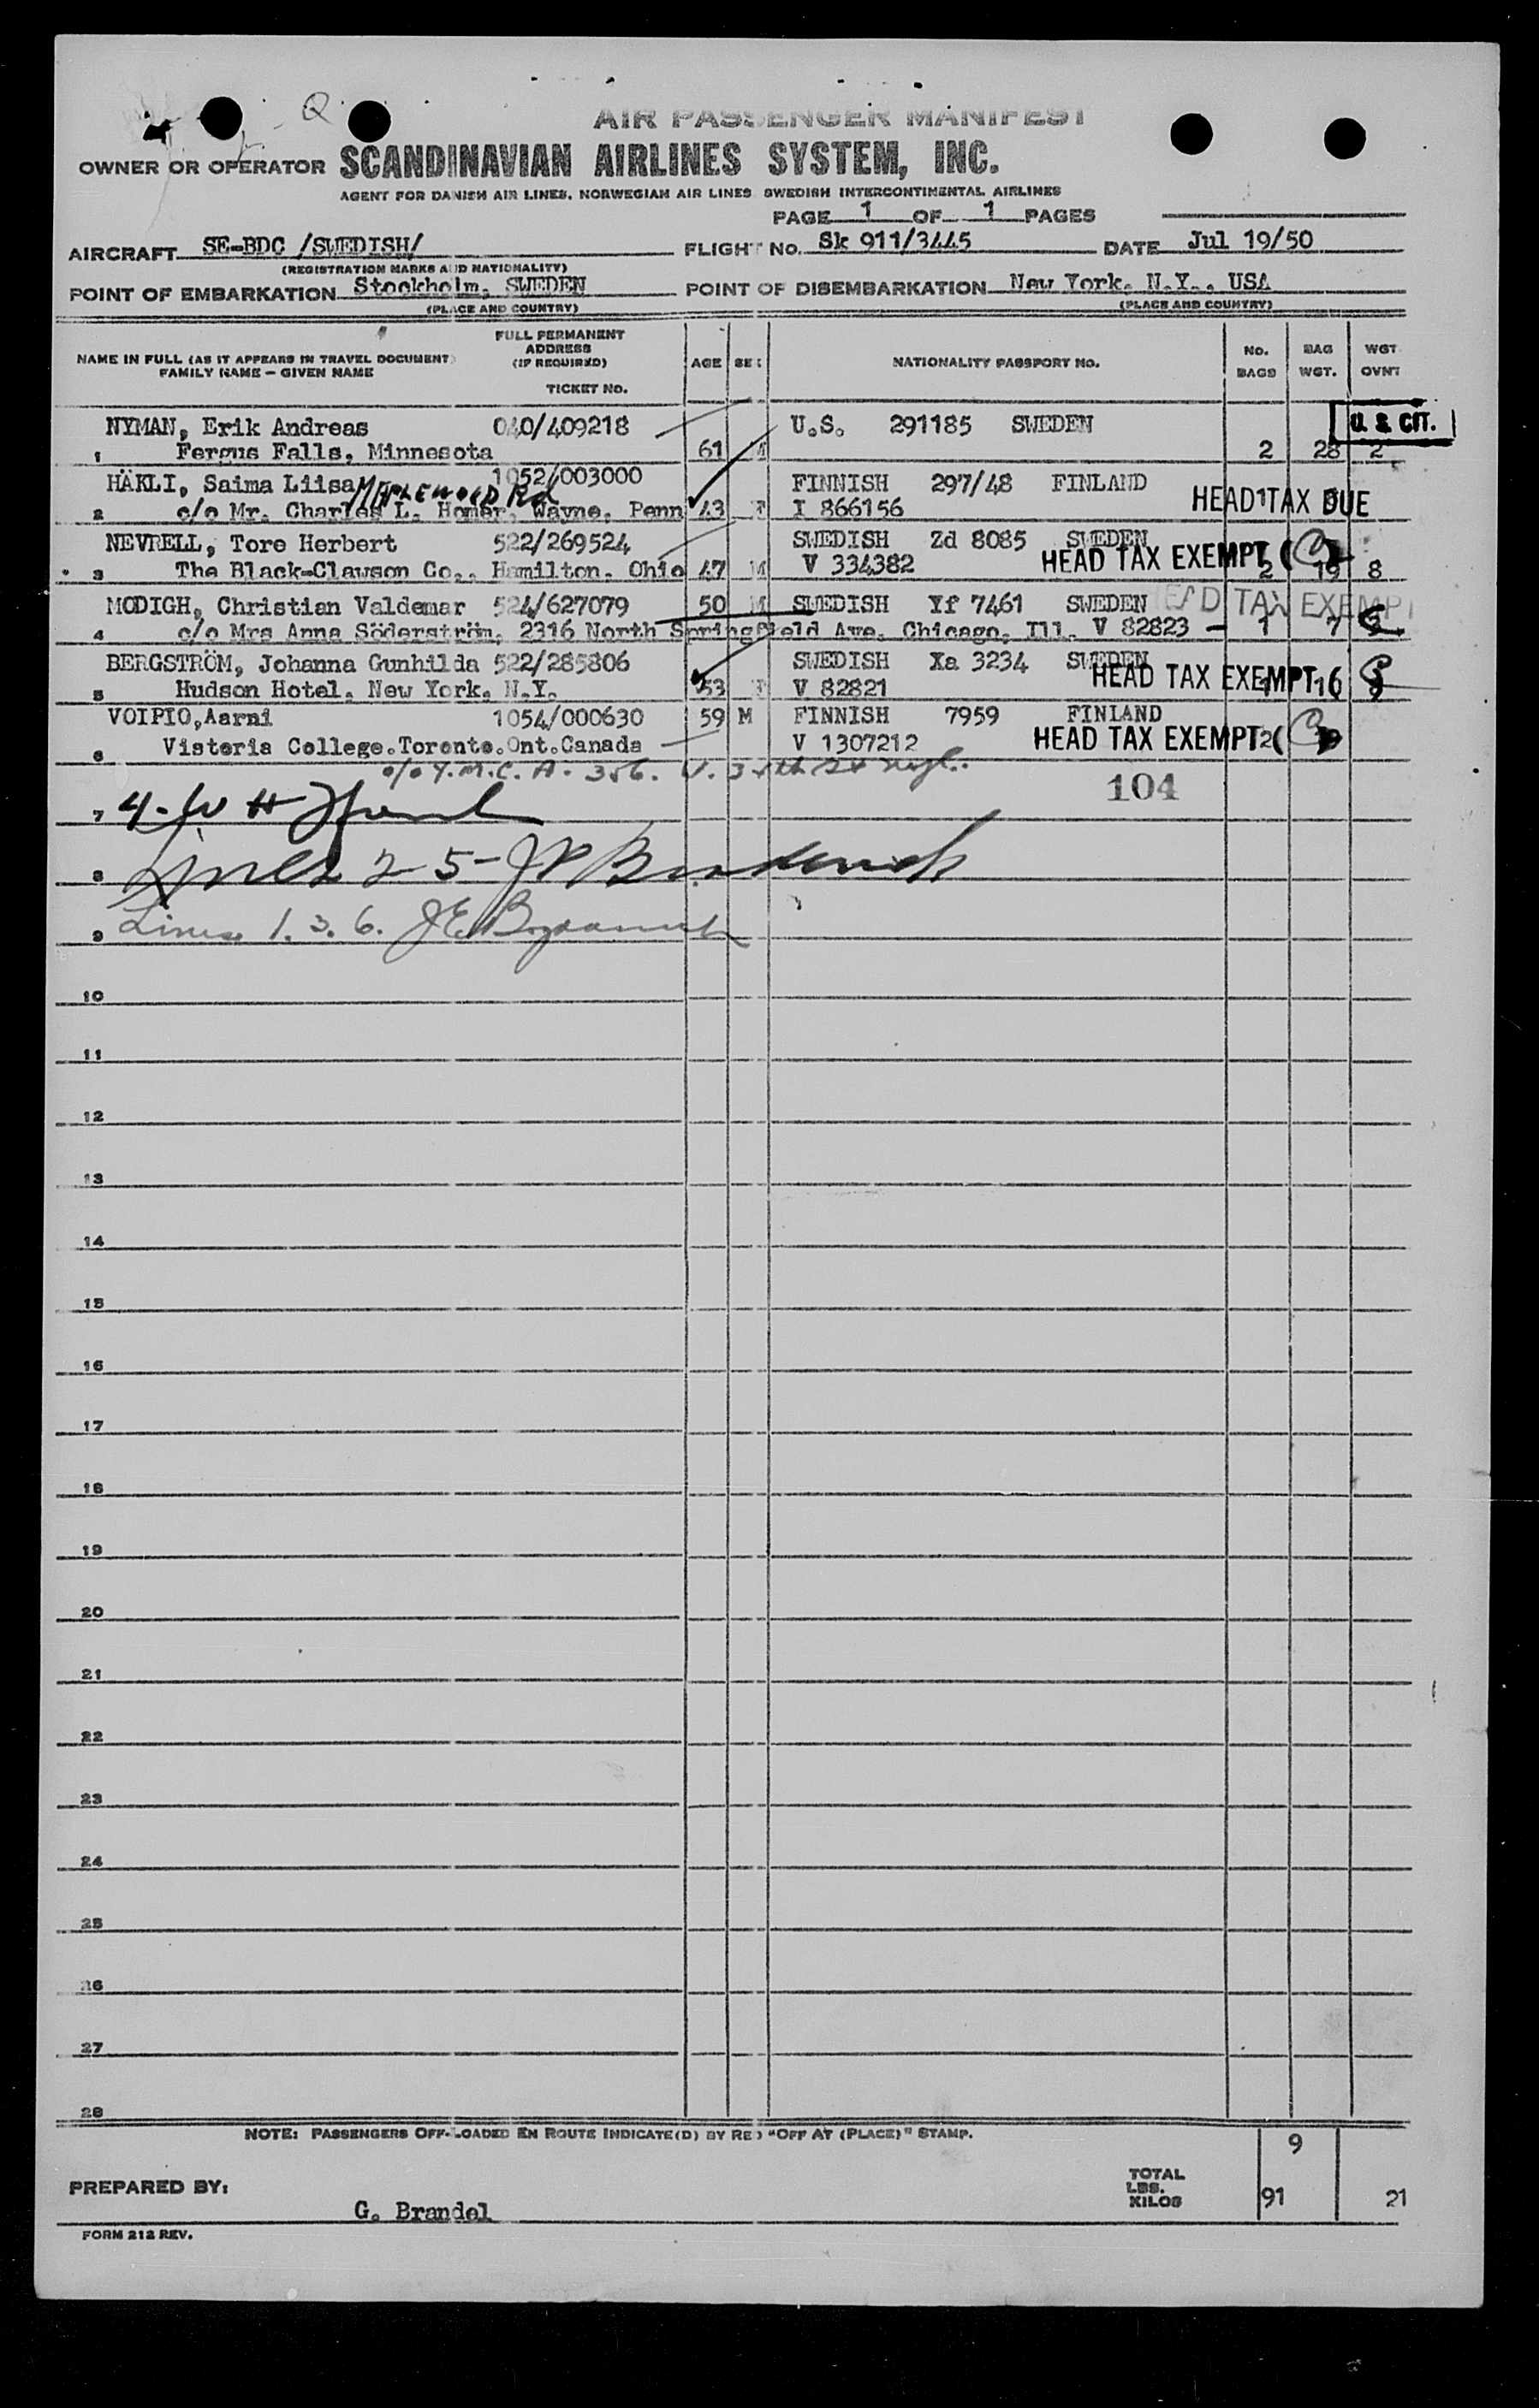 AIR PASSENGER MANIFEST
OWNER OR OPERATOR SCANDINAVIAN AIRLINES SYSTEM, INC.
AGENT FOR DANISH AIR LINES, NORWEGIAN AIR LINES SWEDISH INTERCONTINENTAL AIRLINES
PAGE 1 OF 1 PAGES
AIRCRAFT SE-BDC /SWEDISH/ FLIGHT No. Sk 911/3445 DATE Jul 19/50
(REGISTRATION MARKS AND NATIONALITY)
POINT OF EMBARKATION Stockholm, SWEDEN POINT OF DISEMBARKATION New York, N.Y., USA
(PLACE AND COUNTRY) (PLACE AND COUNTRY)
NAME IN FULL (AS IT APPEARS IN TRAVEL DOCUMENT) FAMILY NAME — GIVEN NAME FULL PERMANENT ADDRESS (IF REQUIRED) TICKET No. AGE SEX NATIONALITY PASSPORT NO. No. BAGS BAG WGT. WGT. OVNT
NYMAN, Erik Andreas 040/409218 U.S. 291185 SWEDEN U. S. CIT.
1 Fergus Falls, Minnesota 61 M 2 28 2
HÄKLI, Saima Liisa 1052/003000 FINNISH 297/48 FINLAND
MAPLEWOOD Rd
2 c/o Mr. Charles L. Homer, Wayne, Penn 43 F I 866156 HEAD TAX DUE
NEVRELL, Tore Herbert 522/269524 SWEDISH Zd 8085 SWEDEN
3 The Black-Clawson Co., Hamilton, Ohio 47 M V 334382 HEAD TAX EXEMPT 2 19 8
MODIGH, Christian Valdemar 524/627079 50 M SWEDISH Yf 7461 SWEDEN HEAD TAX EXEMPT
4 c/o Mrs Anna Söderström, 2316 North Springfield Ave. Chicago, Ill. V 82823 1 7
BERGSTRÖM, Johanna Gunhilda 522/285806 SWEDISH Xa 3234 SWEDEN
5 Hudson Hotel, New York, N.Y. 53 F V 82821 HEAD TAX EXEMPT 1 16
VOIPIO,Aarni 1054/000630 59 M FINNISH 7959 FINLAND
6 Vistoria College.Toronto.Ont.Canada V 1307212 HEAD TAX EXEMPT 2
c/o Y.M.C.A. 356. W. 34th St
104
7 4- W H
8 Lines 2 5- J P
9 Lines 1. 3. 6. J E
10
11
12
13
14
15
16
17
18
19
20
21
22
23
24
25
26
27
28
NOTE: PASSENGERS OFF-LOADED EN ROUTE INDICATE(D) BY RED "OFF AT (PLACE)" STAMP.
9
PREPARED BY: G. Brandel TOTAL LBS. KILOS 91 21
FORM 212 REV.